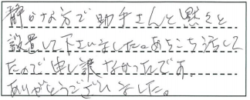 静かな方で助手さんと黙々と
設置して下さいました。あちこち汚くて
たので申し訳なかったです。
ありがとうございました。